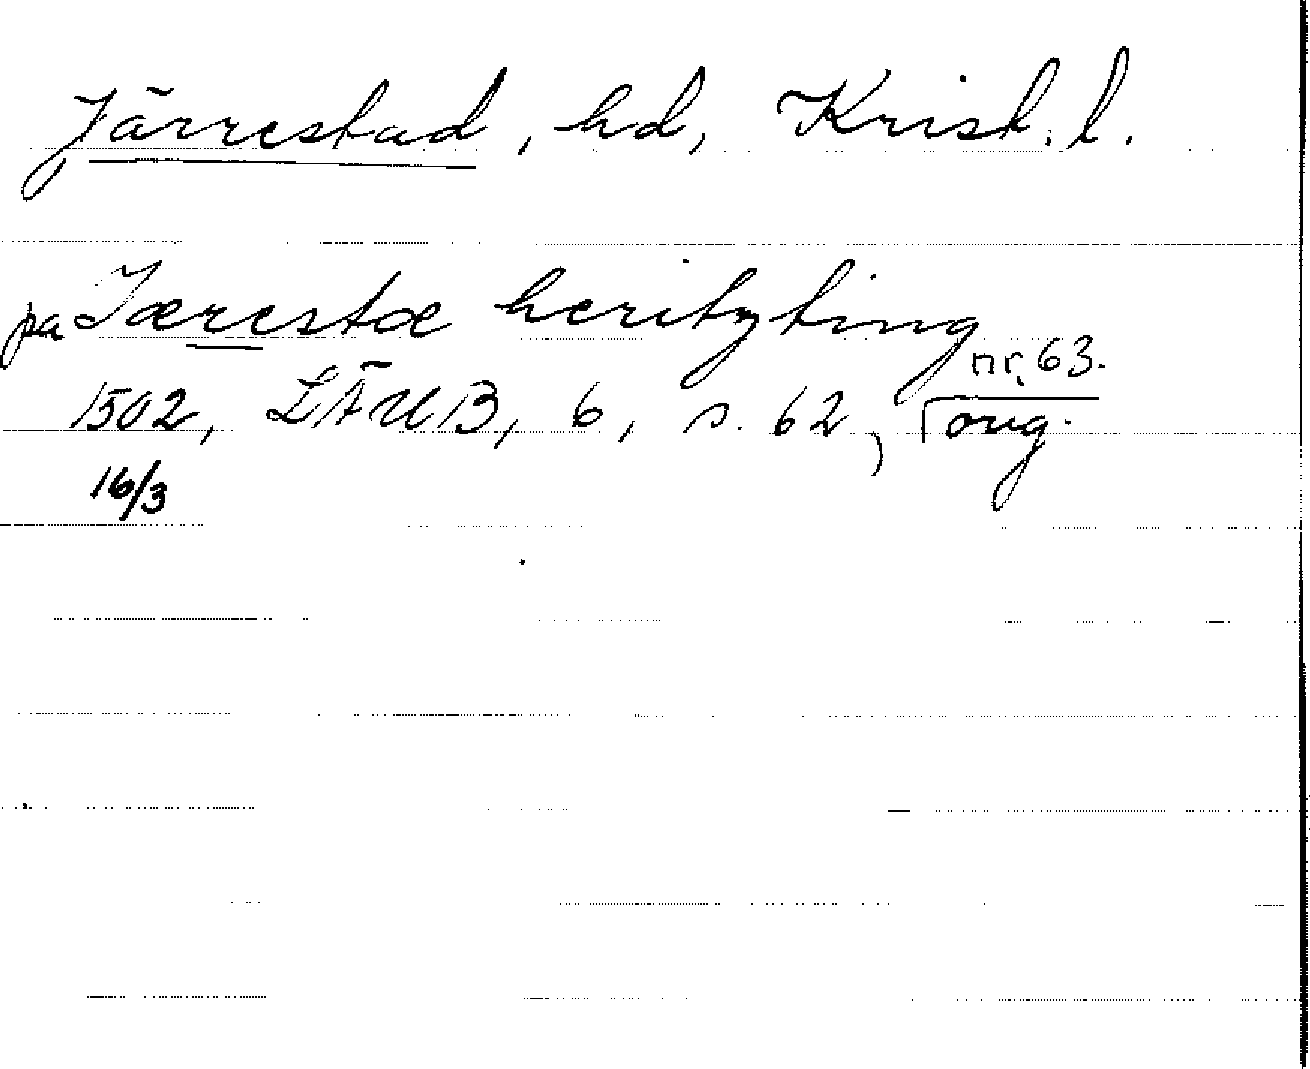 Järrestad, hd, Krist. l.
pa Jærestæ heritzting
nr. 63.
1502, LÄUB, 6, s. 62, orig.
16/3